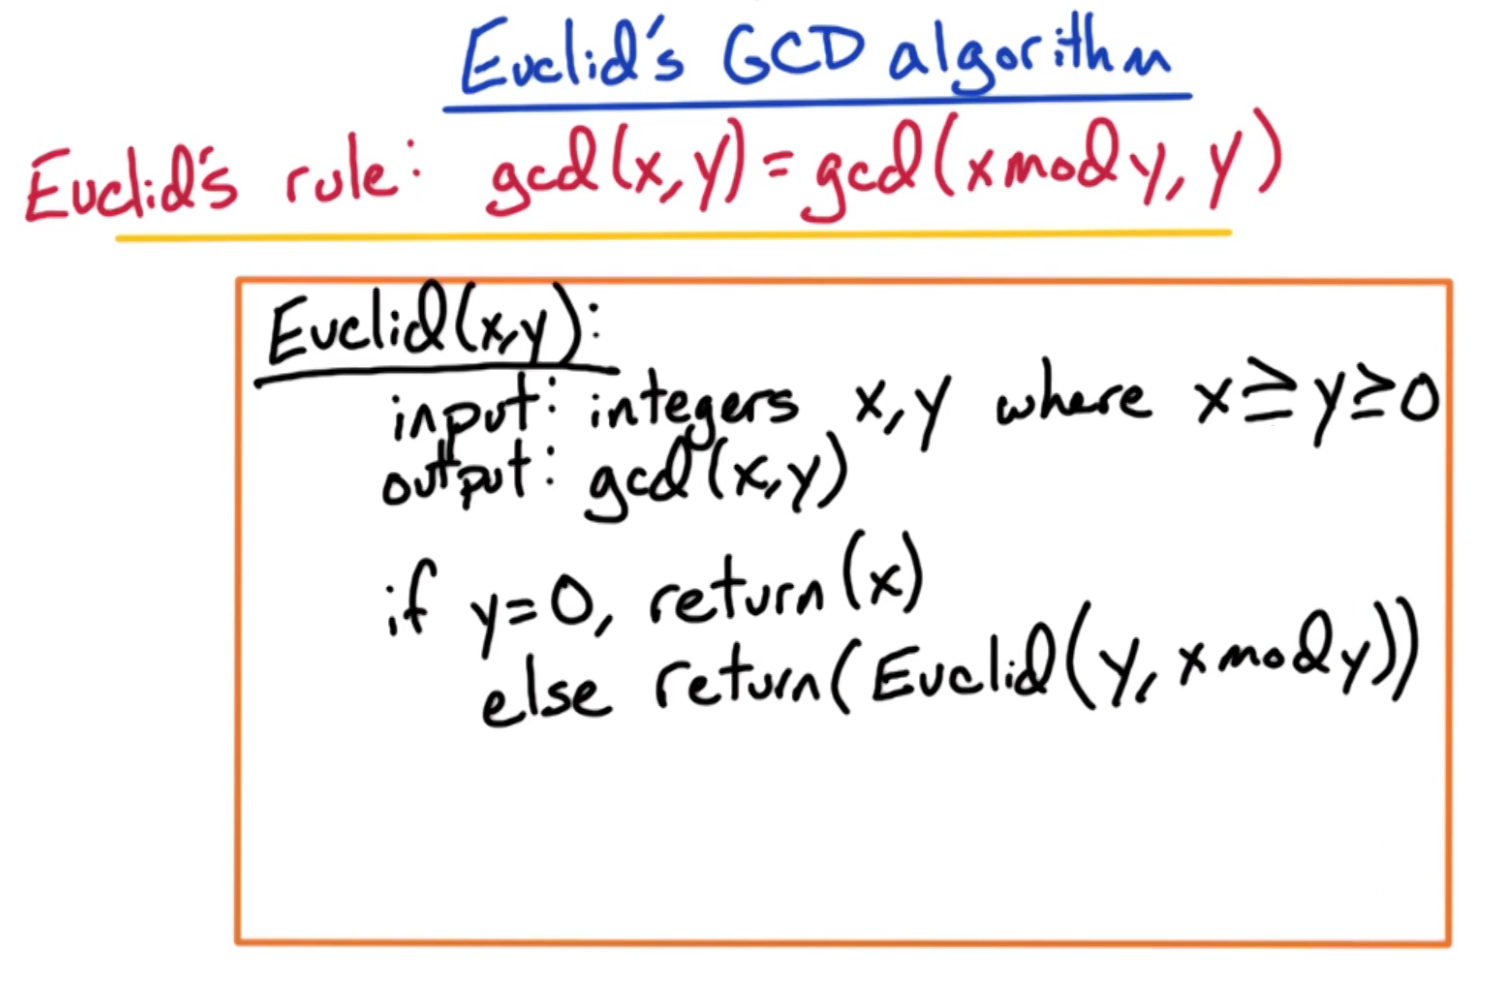 Euclid's GCD algorithm
Euclid's rule: gcd(x,y)=gcd(x mod y, y)
Euclid(x,y):
input: integers x,y where x≥y≥0
output: gcd(x,y)
if y=0, return(x)
else return(Euclid(y, x mod y))